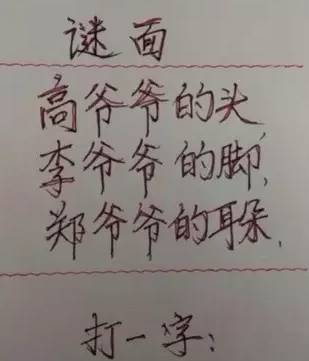 谜面
高爷爷的头,
李爷爷的脚,
郑爷爷的耳朵.
打一字: